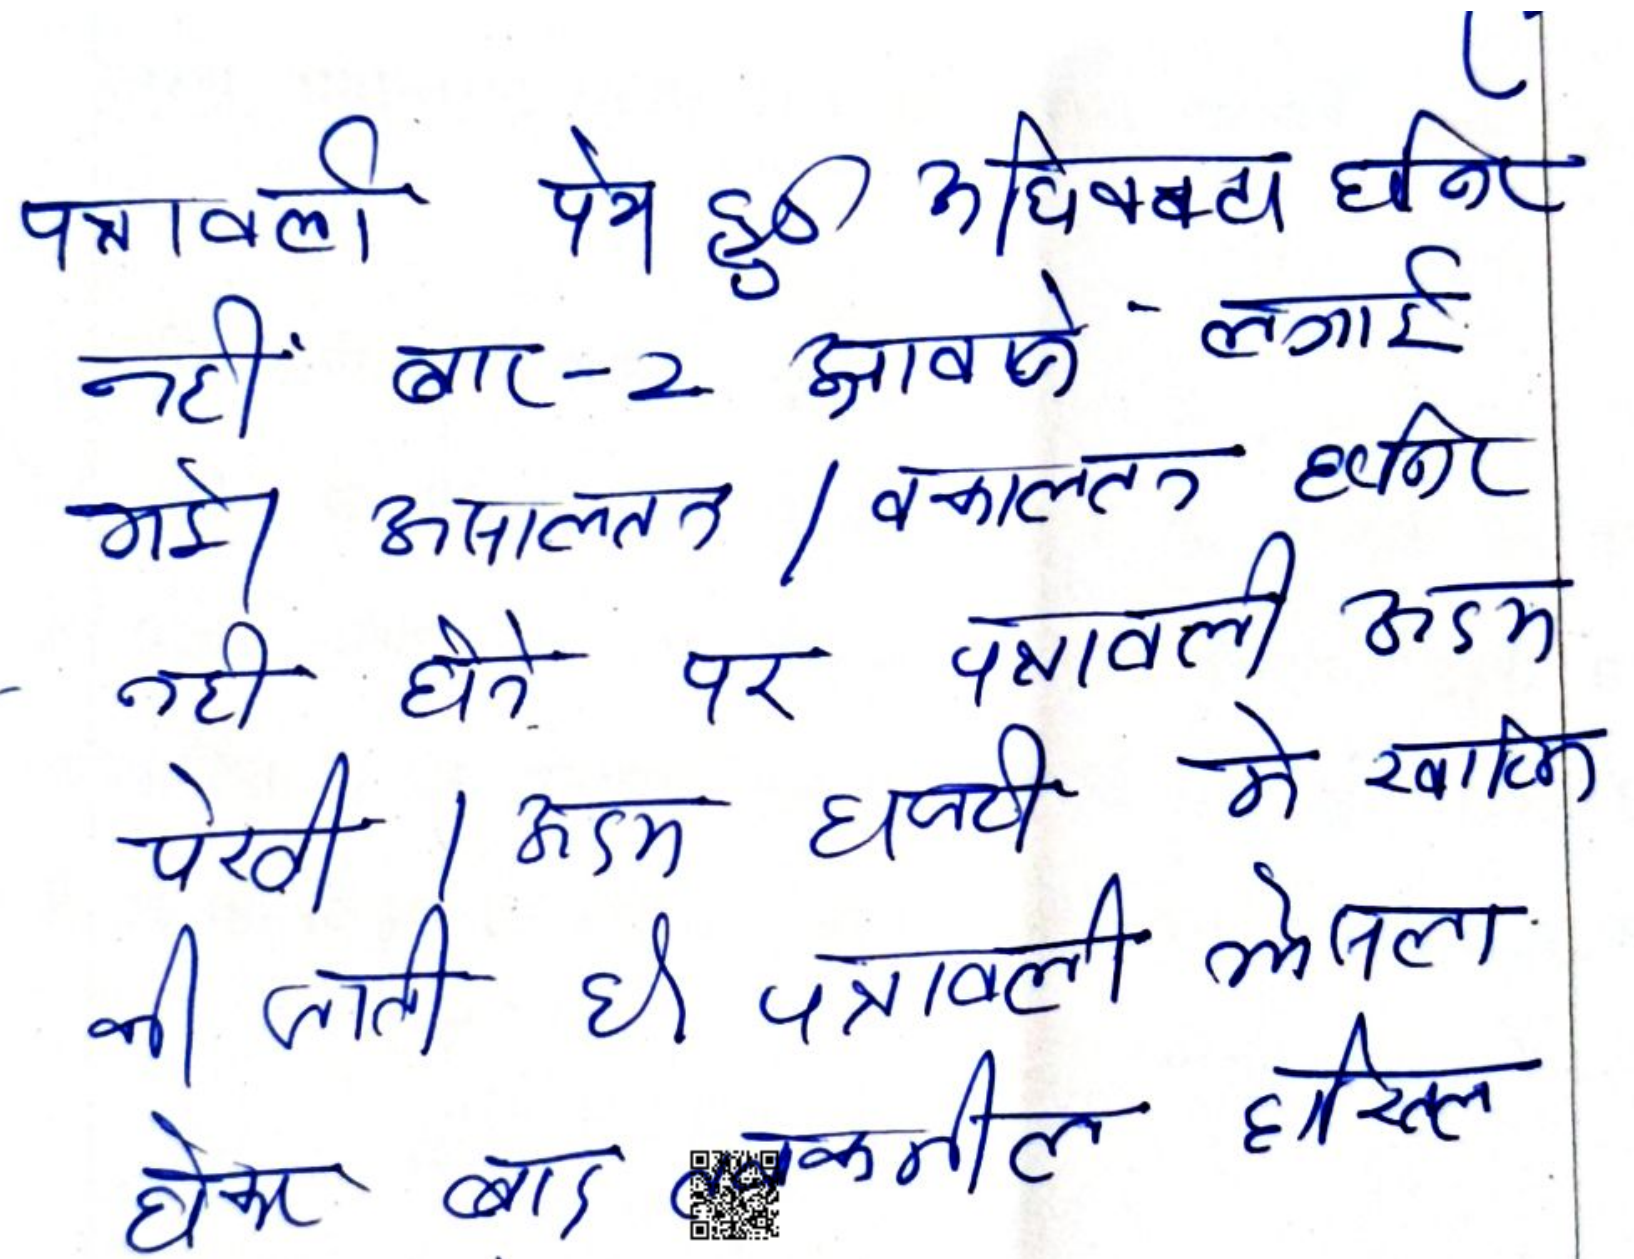 पत्रावली पेश हुई अधिवक्ता हाजिर
नहीं बार-2 आवाजे लगाई
गई। असालतन / वकालतन हाजिर
नही होने पर पत्रावली अदम
पेरवी / अदम हाजरी मे खारिज
की जाती है पत्रावली फेसला
होकर बाद तकमील दाखिल